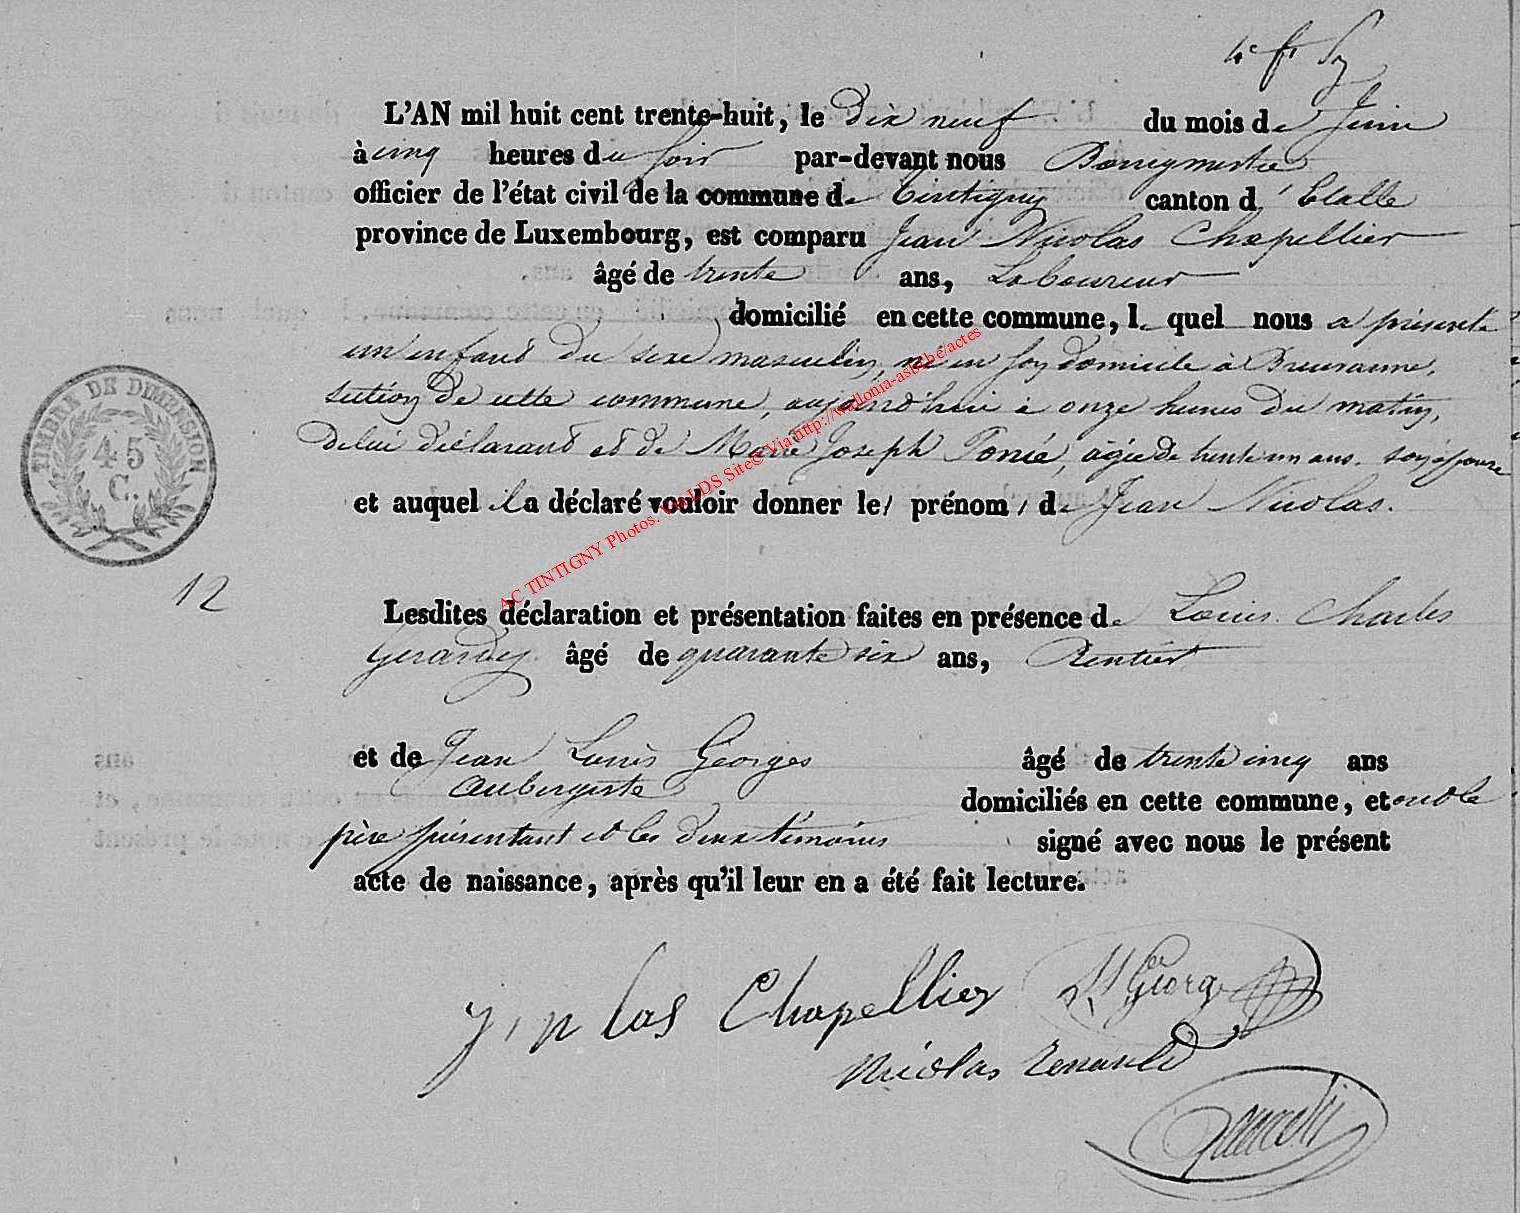 L'AN mil huit cent trente-huit, le dix neuf du mois de Juin
à cinq heures du soir par-devant nous Bourgmestre
officier de l'état civil de la commune de Tintigny canton d'Etalle
province de Luxembourg, est comparu Jean Nicolas Chapellier
âgé de trente ans, Laboureur
domicilié en cette commune, le quel nous a présenté
un enfant du sexe masculin, né en son domicile à Breuvanne,
section de cette commune, aujourd'hui à onze heures du matin,
de lui déclarant et de Marie Joseph Poncé, agée de trente un ans, son épouse
et auquel il a déclaré vouloir donner les prénoms de Jean Nicolas.
TIMBRE DE DIMENSION
45
C.
12
Lesdites déclaration et présentation faites en présence de Louis Charles
Gerardy âgé de quarante six ans, Rentier
et de Jean Louis Georges âgé de trente cinq ans
Aubergiste domiciliés en cette commune, et ont le
père présentant et les deux témoins signé avec nous le présent
acte de naissance, après qu'il leur en a été fait lecture.
j, n las Chapellier Georg
Nicolas
AC TINTIGNY Photos. Via LDS Site© Via http://wallonia-asbl.be/actes